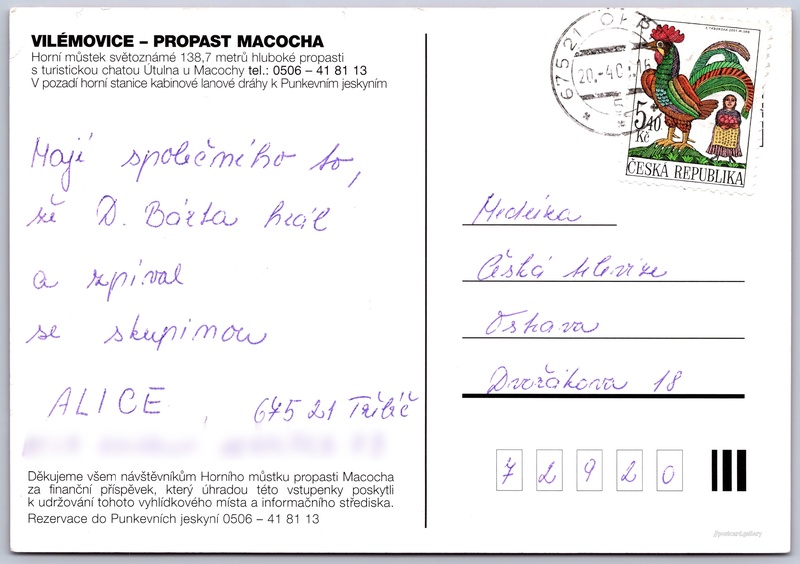 VILÉMOVICE – PROPAST MACOCHA
Horní můstek světoznámé 138,7 metrů hluboké propasti
s turistickou chatou Útulna u Macochy tel.: 0506 – 41 81 13
V pozadí horní stanice kabinové lanové dráhy k Punkevním jeskyním
Mají společného to,
že D. Bárta hrál
a zpíval
se skupinou
ALICE
67521 Třebíč
Děkujeme všem návštěvníkům Horního můstku propasti Macocha
za finanční příspěvek, který úhradou této vstupenky poskytli
k udržování tohoto vyhlídkového místa a informačního střediska.
Rezervace do Punkevních jeskyní 0506 – 41 81 13
675 21
20.-4
5,40
Kč
ČESKÁ REPUBLIKA
Medúzka
Česká televize
Ostrava
Dvořákova 18
72920